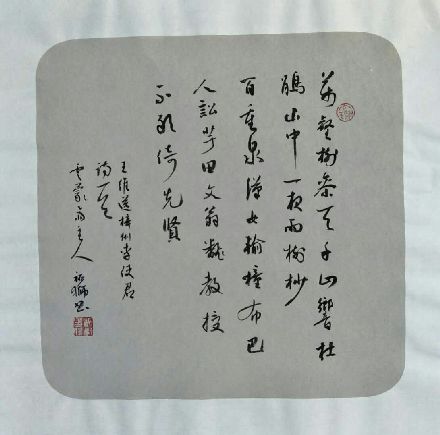 萬壑樹參天千山響杜
鵑山中一夜雨樹杪
百重泉漢女輸橦布巴
人訟芋田文翁翻教授
不敢倚先賢
王維送梓州李使君
詩一首
主人